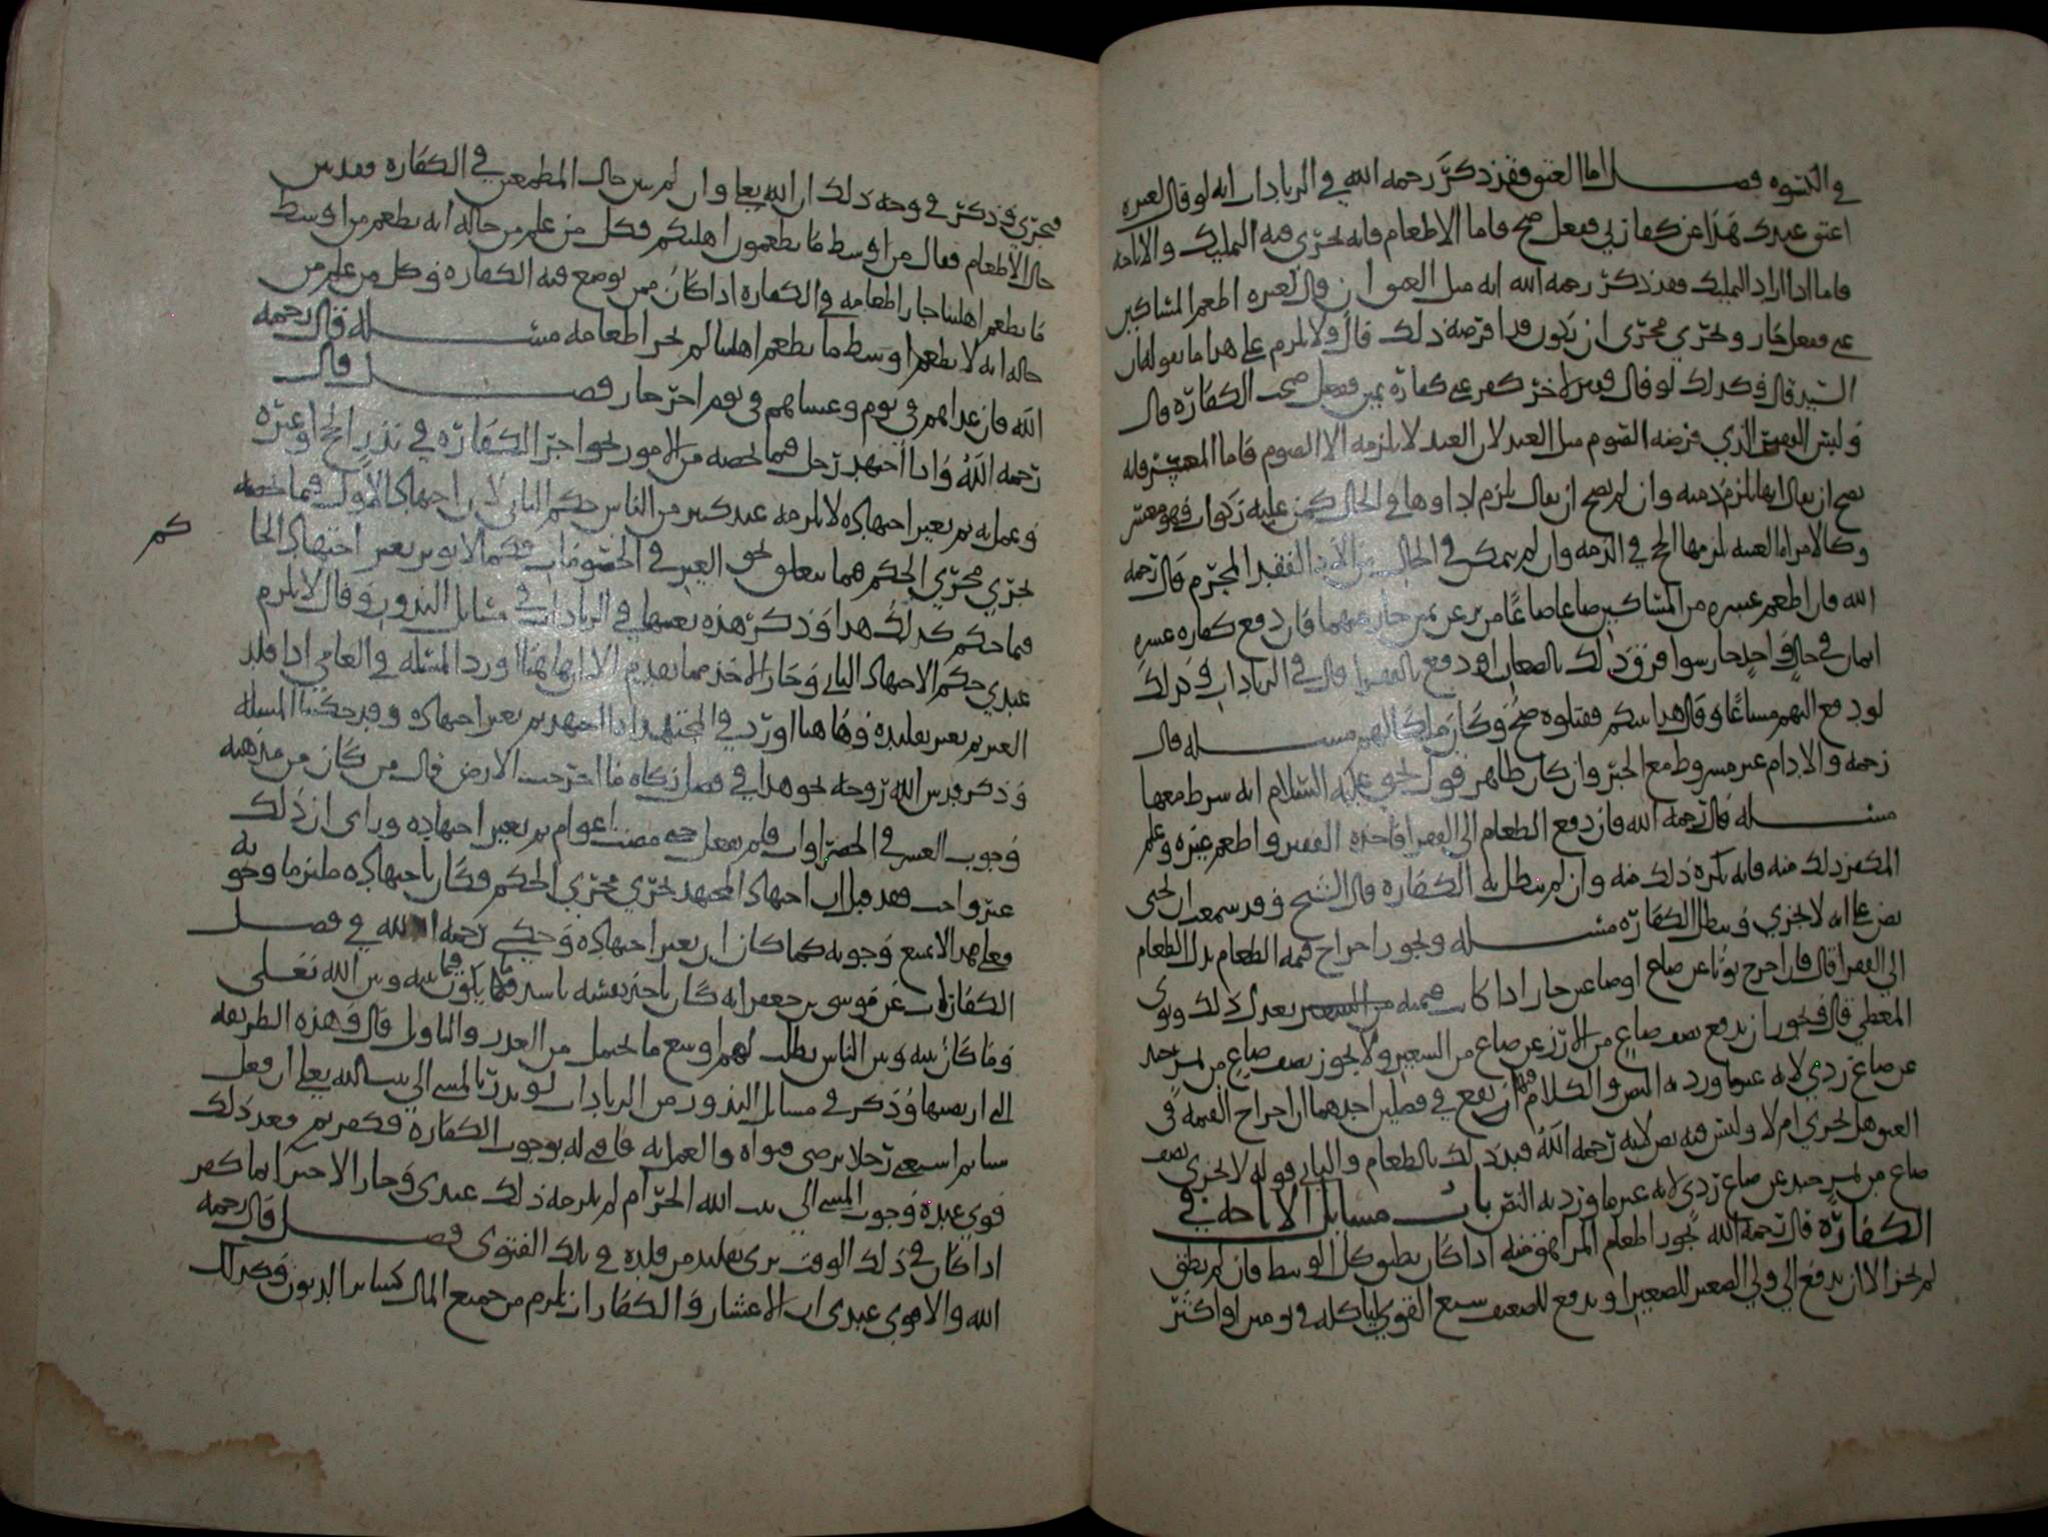 في الكسوة فصل اما العتق فقد ذكر رحمه الله في الزيادات انه لو قال لغيره
اعتق عبدك هذا عن كفارتي ففعل صح فاما الاطعام فانه يجزي فيه التمليك والاباحة
فاما اذا اراد التمليك فقد ذكر رحمه الله انه مثل العتق ان قال لغيره اطعم المساكين
عني ففعل جاز ويجري مجرى ان يكون قد اقرضه ذلك قال ولا يلزم على هذا ما يقوله ان
السيد قال وكذلك لو قال لاخر كفر عني كفارة يمين ففعل صحت الكفارة قال
وليس الفقير الذي فرضه الصوم مثل العبد لان العبد لا يلزمه الا الصوم فاما المعسر فانه
يصح ان يقال انها تلزم ذمته وان لم يصح ان يقال يلزم اداوها في الحال كمن عليه زكوات فهو معسر
وكالامراة الغنية يلزمها الحج في الذمة وان لم يمكن في الحال المحرم قال رحمه
الله فان اطعم عشرة من المساكين صاعا صاعا من بر عن يمين جاز عنهما فان دفع كفارة عشرة
ايمان في حال واحد جاز سوا فرق ذلك بالصفات او دفع بالفقرا قال في الزيادات وكذلك
لو دفع اليهم مشاعا وقال هذا بينكم فقبلوه صح وكان ملكا لهم مسئلة قال
رحمه والادام غير مشروط مع الخبز وان كان ظاهر قول يحيى عليه السلام انه شرط معها
مسئلة قال رحمه الله فان دفع الطعام الى الفقرا فاخذه الفقير واطعم غيره وعلم
المكفر ذلك منه فانه يكره ذلك منه وان لم تبطل به الكفارة قال الشيخ وقد سمعت ان يحيى
نص على انه لا يجزي وتبطل الكفارة مسئلة ويجوز اخراج قيمة الطعام بدل الطعام
الى الفقرا قال فان اخرج ثوبا عن صاع او صاعين جاز اذا كان قيمته بعدل ذلك ونوى
المعطي قال ويجوز ان يدفع نصف صاع من الارز عن صاع من الشعير ولا يجوز نصف صاع من تمر جيد
عن صاع ردي لانه عين ما ورد به النص والكلام فيها ان يقع في فصلين احدهما ان اخراج القيمة في
العتق هل يجزي ام لا وليس فيه نص لانه رحمه الله قيد ذلك بالطعام والثاني قوله لا يجزي نصف
صاع من تمر جيد عن صاع ردي لانه عين ما ورد به النص باب مسائل الاباحة في
الكفارة قال رحمه الله يجوز اطعام المراهق منه اذا كان يطيق كل الوسط فان لم يطق
لم يجز الا ان يدفع الى ولي الصغير للصغير او يدفع للضعيف شبع القوي لياكله في يومين او اكثر
فيجزي وذكر في وجه ذلك ان الله تعالى وان لم يبين حال المطعمين في الكفارة فقد بين
حال الاطعام فقال من اوسط ما تطعمون اهليكم فكل من علم من حاله انه يطعم من اوسط
ما يطعم اهلينا جاز اطعامه في الكفارة اذا كان ممن يوضع فيه الكفارة وكل من علم من
حاله انه لا يطعم اوسط ما يطعم اهلينا لم يجز اطعامه مسئلة قال رحمه
الله فان غداهم في يوم وعشاهم في يوم اخر جاز فصل قال
رحمه الله واذا اجتهد رجل فيما يخصه من الامور نحو اجزا الكفارة في نذر الحج او غيره
وعمل به ثم تغير اجتهاده لا يلزمه عند كثير من الناس حكم الثاني لان اجتهاده الاول فيما خصه
يجري مجرى الحكم فيما يتعلق بحق الغير في الخصومات فكما لا يوثر تغير اجتهاد الحا
كم
فيما حكم كذلك هذا وذكر هذه بعينها في الزيادات في مسائل النذور وقال لا يلزم
عندي حكم الاجتهاد الثاني وجاز الاخذ بما تقدم الا ان هاهنا اورد المسئلة في العامي اذا قلد
الغير ثم تغير تقليده وهاهنا اورد في المجتهد اذا اجتهد ثم تغير اجتهاده وقد حكينا المسئلة
وذكر قدس الله روحه نحو هذا في فصل زكاة ما اخرجت الارض قال من كان من مذهبه
وجوب العشر في الخضراوات فلم يفعل حتى مضت اعوام ثم تغير اجتهاده وراى ان ذلك
غير واجب فقد قيل ان اجتهاد المجتهد يجري مجرى الحكم فكان باجتهاده ملتزما وجوبه
فعلى هذا لا يمنع وجوبه كما كان ان تغير اجتهاده وحكى رحمه الله في فصل
الكفارات عن موسى بن جعفر انه كان ياخذ نفسه باشد ما يكون فيما بينه وبين الله تعالى
وما كان بينه وبين الناس يطلب لهم اوسع ما يحتمل من العذر والتاويل قال وهذه الطريقة
التي ارتضيها وذكر في مسائل النذور من الزيادات لو نذر بالمشي الى بيت الله تعالى ان فعل
شيا ثم استفتى رجلا يرضى فتواه والعمل به فافتى له بوجوب الكفارة فكفر ثم بعد ذلك
قوي عنده وجوب المشي الى بيت الله الحرام لم يلزمه ذلك عندي وجاز الاجتزا بما كفر
اذا كان في ذلك الوقت يرى تقليد من قلده في تلك الفتوى فصل قال رحمه
الله والاقوى عندي ان الاعشار والكفارات تلزم من جميع المال كساير الديون وكذلك